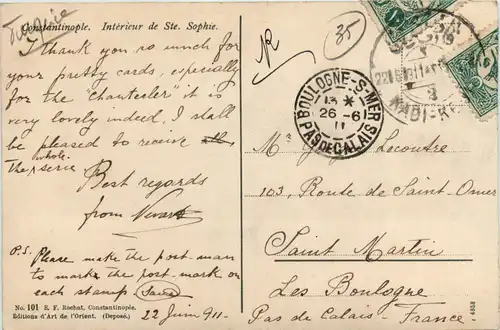 Turquie
Constantinople. Intérieur de Ste. Sophie.
Thank you so much for
your pretty cards, especially
for the "chantecler" it is
very lovely indeed, I shall
be pleased to receive
whole.
The serie
Best regards
from
P.S. Please make the post-man
to mark the post-mark on
each stamp.
22 Juin 911.
No. 101 E. F. Rochat, Constantinople.
Editions d'Art de l'Orient. (Deposé.)
35
BOULOGNE-S-MER
13 *
26 - 6
11
PAS DE CALAIS
Mr Lecoutre
103, Route de Saint-Omer
Saint Martin
Les Boulogne
Pas de Calais - France -
4858